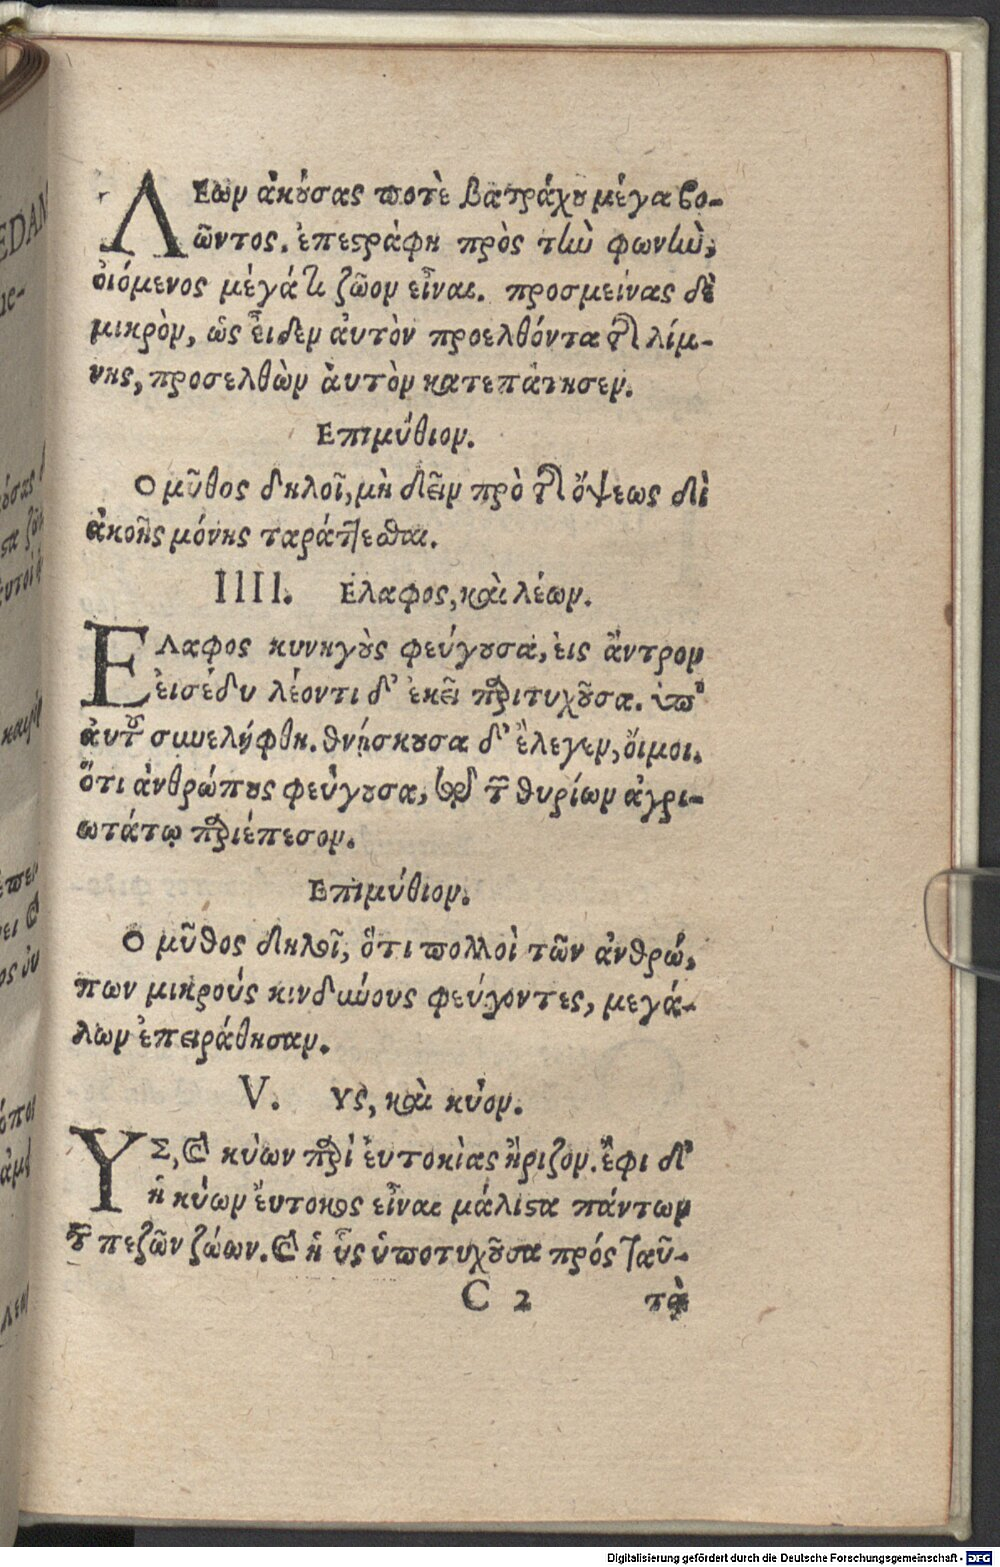 ΛΕων ἀκούσας ποτὲ βατράχου μέγα βο-
ῶντος. ἐπεστράφη πρὸς τὴν φωνὴν,
ὀιόμενος μέγά τι ζῶον εἶναι. προσμείνας δὲ
μικρὸν, ὡς εἶδεν ἀυτὸν προελθόντα τῆς λίμ-
νης, προσελθὼν ἀυτὸν κατεπάτησεν.
Επιμύθιον.
Ο μῦθος δηλοῖ, μὴ δεῖν πρὸ τῆς ὄψεως δι
ἀκοῆς μόνης ταράττεσθαι.
IIII. Ελαφος, καὶ λέων.
ΕΛαφος κυνηγοὺς φεύγουσα, ἐις ἄντρον
ἐισέδυ λέοντι δ' ἐκεῖ περιτυχοῦσα. ὑπ'
ἀυτοῦ συνελήφθη. θνήσκουσα δ' ἔλεγεν, ὄιμοι.
ὅτι ἀνθρώπους φεύγουσα, τῶν θυρίων ἀγρι-
ωτάτῳ περιέπεσον.
Επιμύθιον.
Ο μῦθος δηλοῖ, ὅτι πολλοὶ τῶν ἀνθρώ,
πων μικροὺς κινδύνους φεύγοντες, μεγά-
λων ἐπειράθησαν.
V. Υς, καὶ κύον.
ΥΣ, καὶ κύων περὶ ἐυτοκίας ἤριζον. ἔφι δὲ
ἡ κύων ἔυτοκος εἶναι μάλιστα πάντων
τῶν πεζῶν ζώων. καὶ ἡ ὗς ὑποτυχοῦσα πρός ταῦ-
C 2 τὰ
Digitalisierung gefördert durch die Deutsche Forschungsgemeinschaft - DFG